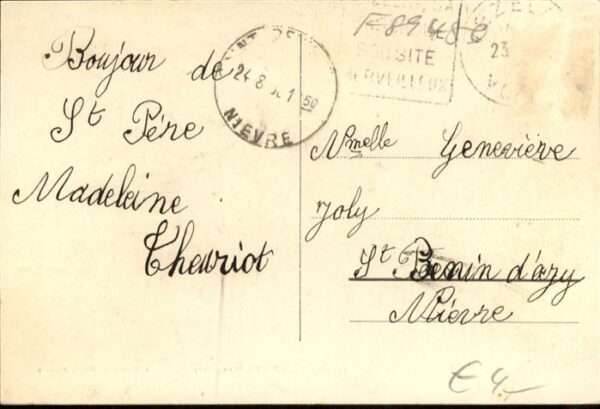 Boujour de
St Père
Madeleine
Theuriot
24-8
50
NIEVRE
F8948C
SON SITE
MERVEILLEUX
23
Nmelle Geneviève
Joly
St Benin d'azy
Nièvre
€ 4,-